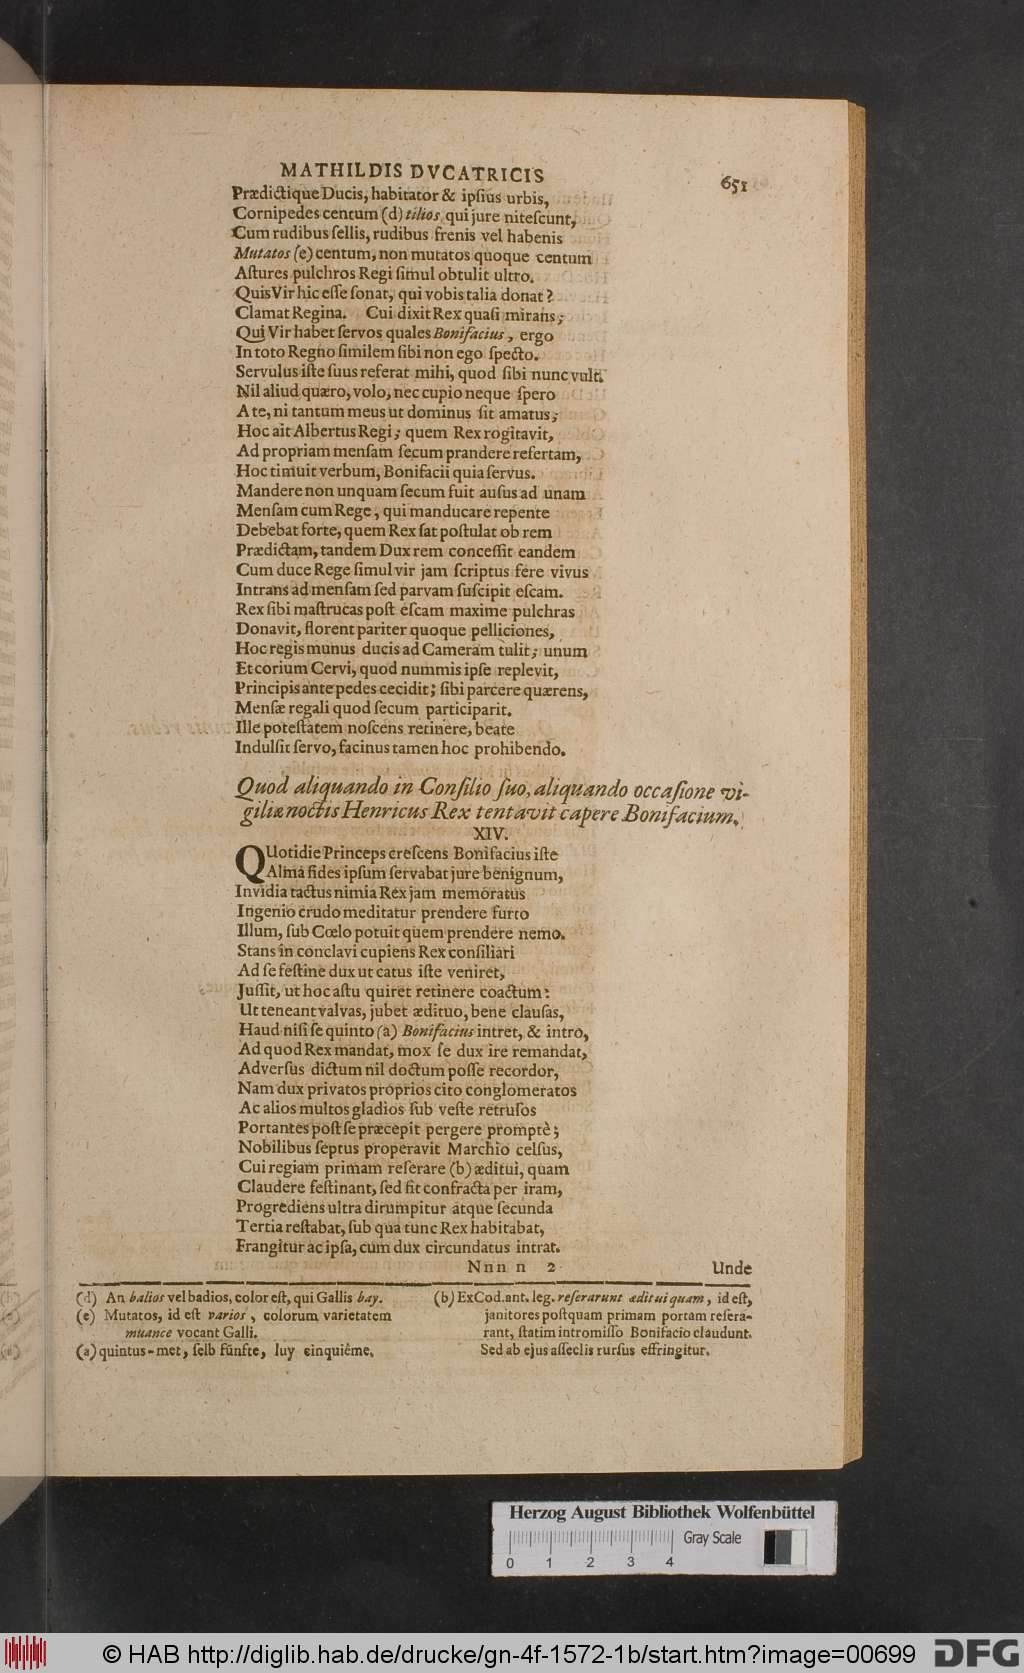 MATHILDIS DVCATRICIS
651
Prædictique Ducis, habitator & ipſius urbis,
Cornipedes centum (d) tilios qui jure niteſcunt,
Cum rudibus ſellis, rudibus frenis vel habenis
Mutatos (e) centum, non mutatos quoque centum
Aſtures pulchros Regi ſimul obtulit ultro.
Quis Vir hic eſſe ſonat, qui vobis talia donat?
Clamat Regina. Cui dixit Rex quaſi mirans;
Qui Vir habet ſervos quales Bonifacius, ergo
In toto Regno ſimilem ſibi non ego ſpecto.
Servulus iſte ſuus referat mihi, quod ſibi nunc vult.
Nil aliud quæro, volo, nec cupio neque ſpero
A te, ni tantum meus ut dominus ſit amatus;
Hoc ait Albertus Regi; quem Rex rogitavit,
Ad propriam menſam ſecum prandere refertam,
Hoc timuit verbum, Bonifacii quia ſervus.
Mandere non unquam ſecum fuit auſus ad unam
Menſam cum Rege, qui manducare repente
Debebat forte, quem Rex ſat poſtulat ob rem
Prædictam, tandem Dux rem conceſſit eandem
Cum duce Rege ſimul vir jam ſcriptus fere vivus
Intrans ad menſam ſed parvam ſuſcipit eſcam.
Rex ſibi maſtrucas poſt eſcam maxime pulchras
Donavit, florent pariter quoque pelliciones,
Hoc regis munus ducis ad Cameram tulit; unum
Et corium Cervi, quod nummis ipſe replevit,
Principis ante pedes cecidit; ſibi parcere quærens,
Menſæ regali quod ſecum participarit.
Ille poteſtatem noſcens retinere, beate
Indulſit ſervo, facinus tamen hoc prohibendo.
Quod aliquando in Conſilio ſuo, aliquando occaſione vi-
giliæ noctis Henricus Rex tentavit capere Bonifacium.
XIV.
QUotidie Princeps creſcens Bonifacius iſte
Alma fides ipſum ſervabat jure benignum,
Invidia tactus nimia Rex jam memoratus
Ingenio crudo meditatur prendere furto
Illum, ſub Cœlo potuit quem prendere nemo.
Stans in conclavi cupiens Rex conſiliari
Ad ſe feſtine dux ut catus iſte veniret,
Juſſit, ut hoc aſtu quiret retinere coactum:
Ut teneant valvas, jubet ædituo, bene clauſas,
Haud niſi ſe quinto (a) Bonifacius intret, & intro,
Ad quod Rex mandat, mox ſe dux ire remandat,
Adverſus dictum nil doctum poſſe recordor,
Nam dux privatos proprios cito conglomeratos
Ac alios multos gladios ſub veſte retruſos
Portantes poſt ſe præcepit pergere promptè;
Nobilibus ſeptus properavit Marchio celſus,
Cui regiam primam reſerare (b) æditui, quam
Claudere feſtinant, ſed fit confracta per iram,
Progrediens ultra dirumpitur atque ſecunda
Tertia reſtabat, ſub qua tunc Rex habitabat,
Frangitur ac ipſa, cum dux circundatus intrat.
Nnn n 2
Unde
(d) An balios vel badios, color eſt, qui Gallis bay.
(e) Mutatos, id eſt varios, colorum varietatem
muance vocant Galli.
(a) quintus-met, ſelb fünfte, luy cinquiéme.
(b) Ex Cod. ant. leg. reſerarunt æditui quam, id eſt,
janitores poſtquam primam portam reſera-
rant, ſtatim intromiſſo Bonifacio claudunt.
Sed ab ejus aſſeclis rurſus effringitur.
Herzog August Bibliothek Wolfenbüttel
Gray Scale
0 1 2 3 4
© HAB http://diglib.hab.de/drucke/gn-4f-1572-1b/start.htm?image=00699
DFG